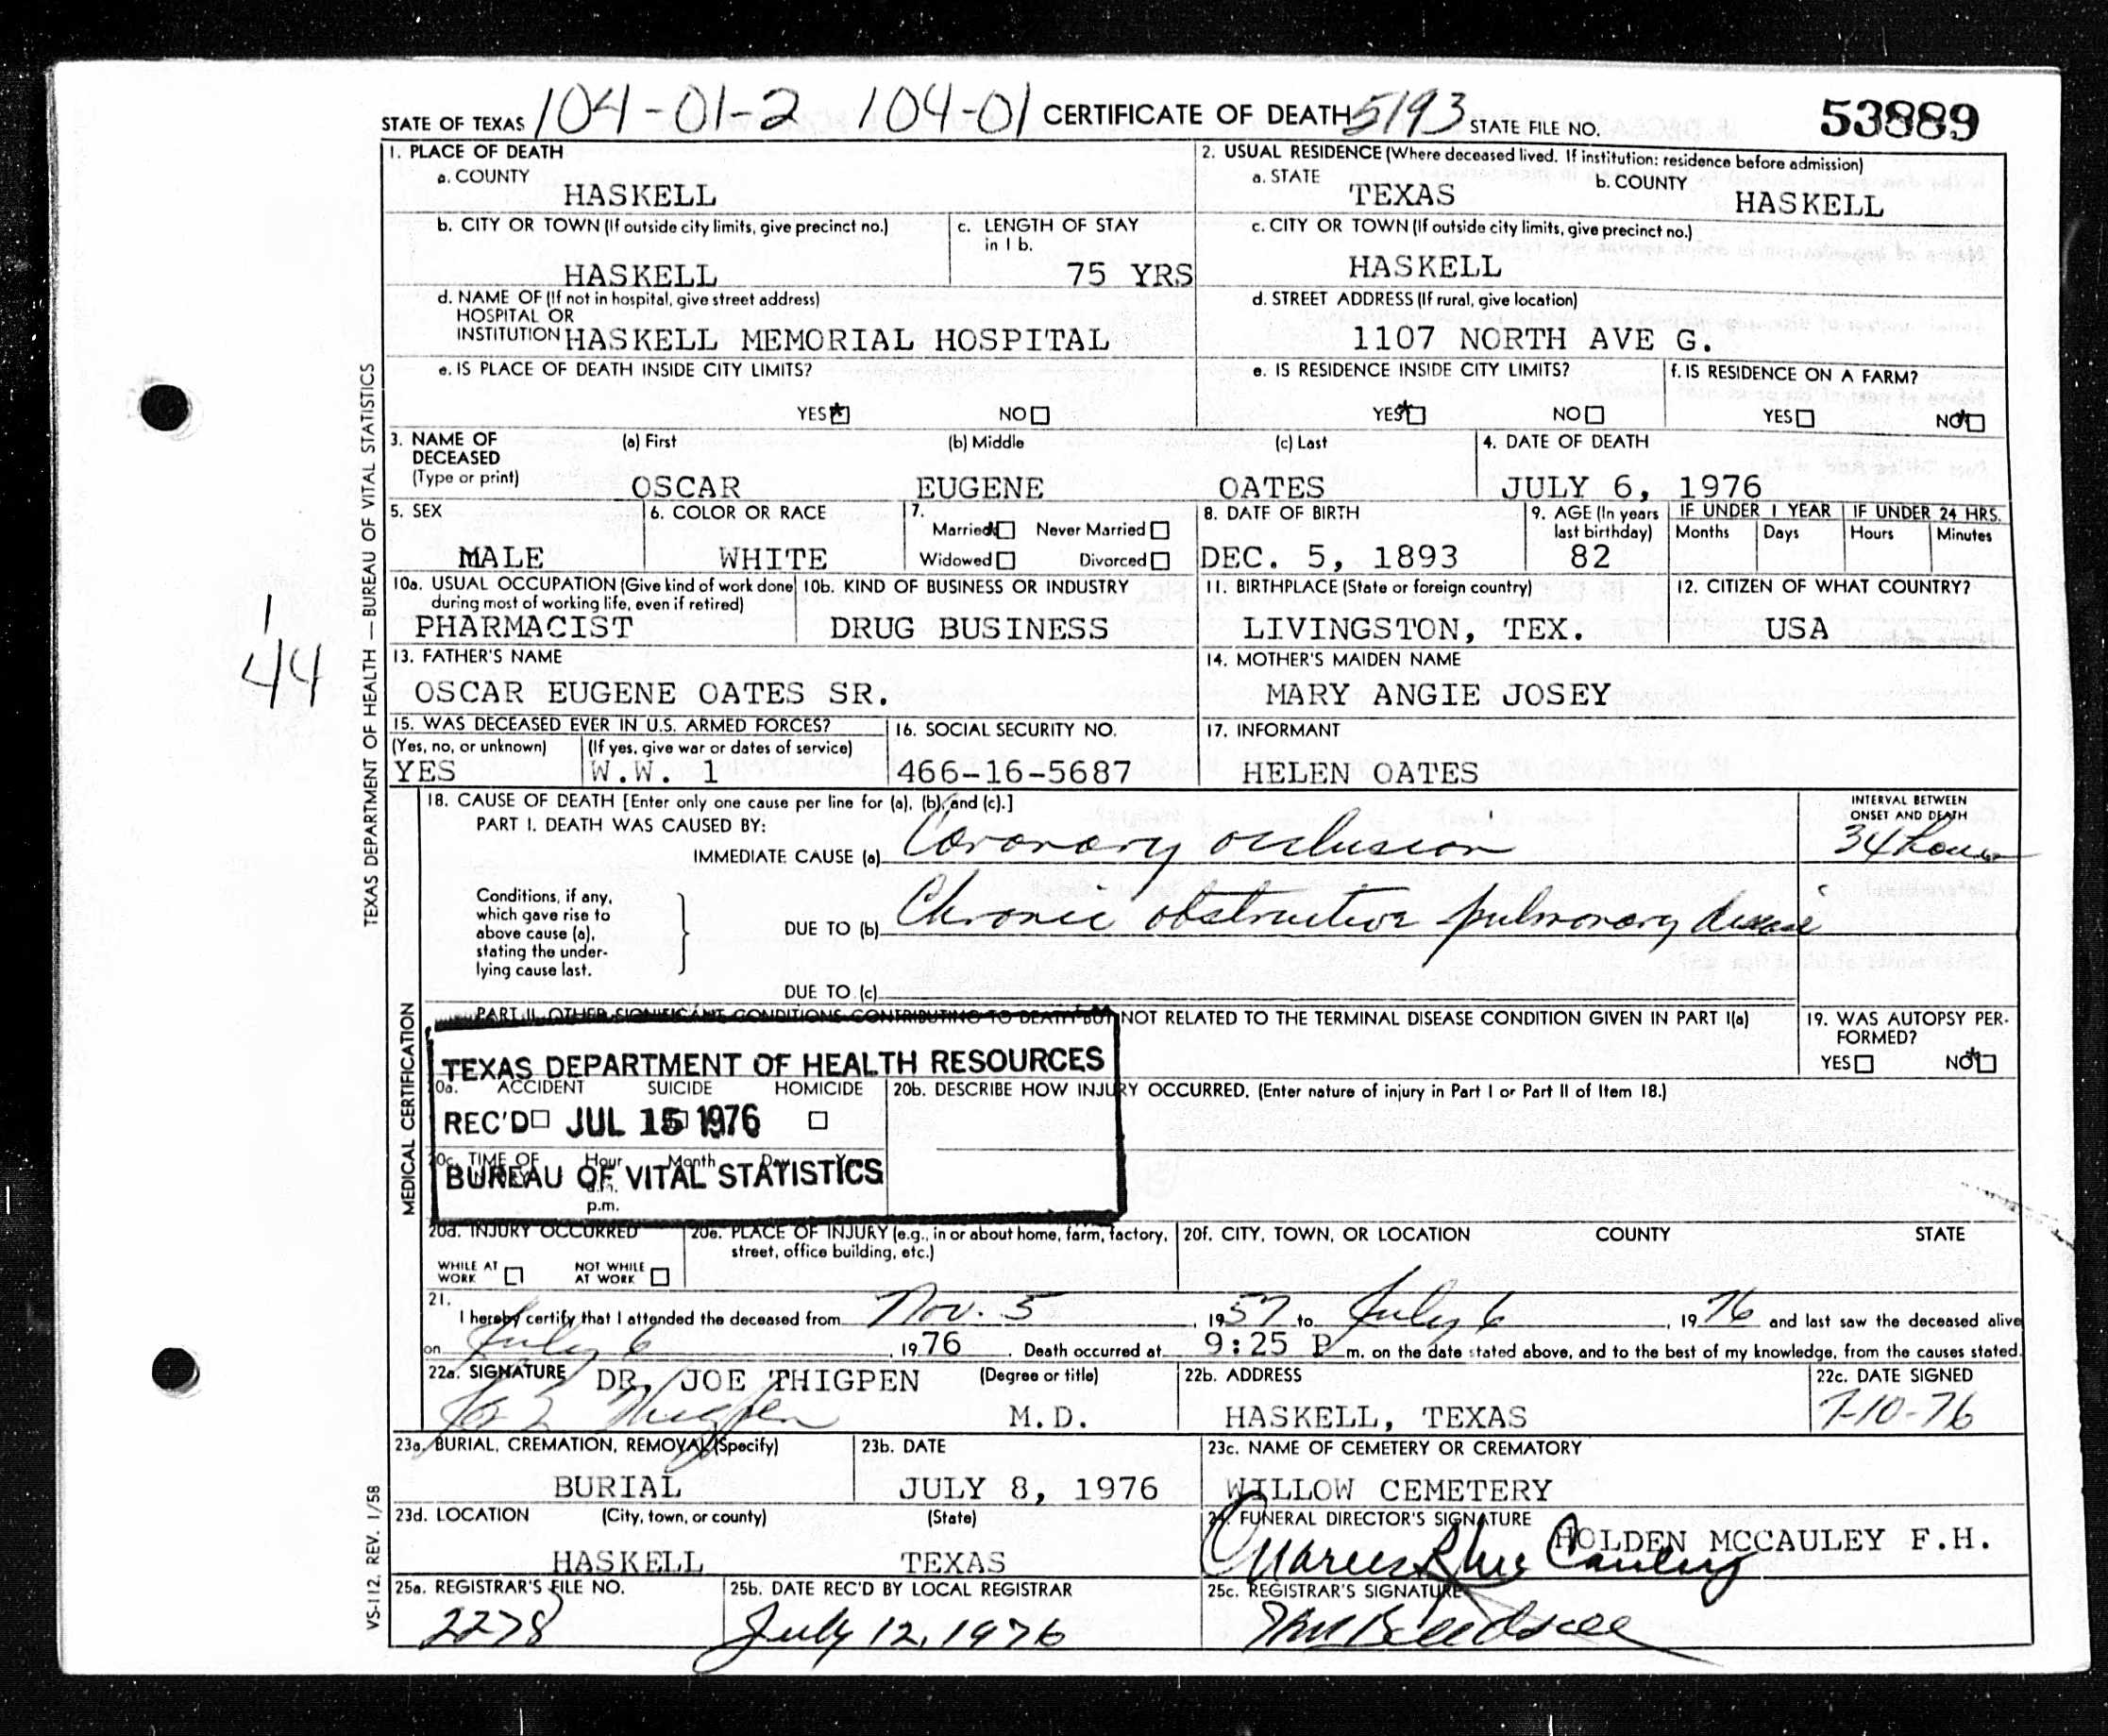 STATE OF TEXAS 104-01-2 104-01 CERTIFICATE OF DEATH 5193 STATE FILE NO. 53889
1. PLACE OF DEATH
a. COUNTY
HASKELL
2. USUAL RESIDENCE (Where deceased lived. If institution: residence before admission)
a. STATE b. COUNTY
TEXAS HASKELL
b. CITY OR TOWN (If outside city limits, give precinct no.)
HASKELL
c. LENGTH OF STAY
in 1 b.
75 YRS
c. CITY OR TOWN (If outside city limits, give precinct no.)
HASKELL
d. NAME OF (If not in hospital, give street address)
HOSPITAL OR
INSTITUTION HASKELL MEMORIAL HOSPITAL
d. STREET ADDRESS (If rural, give location)
1107 NORTH AVE G.
e. IS PLACE OF DEATH INSIDE CITY LIMITS?
YES NO
e. IS RESIDENCE INSIDE CITY LIMITS?
YES NO
f. IS RESIDENCE ON A FARM?
YES NO
3. NAME OF (a) First (b) Middle (c) Last
DECEASED
(Type or print) OSCAR EUGENE OATES
4. DATE OF DEATH
JULY 6, 1976
5. SEX
MALE
6. COLOR OR RACE
WHITE
7.
Married Never Married
Widowed Divorced
8. DATE OF BIRTH
DEC. 5, 1893
9. AGE (In years
last birthday)
82
IF UNDER 1 YEAR IF UNDER 24 HRS.
Months Days Hours Minutes
10a. USUAL OCCUPATION (Give kind of work done
during most of working life, even if retired)
PHARMACIST
10b. KIND OF BUSINESS OR INDUSTRY
DRUG BUSINESS
11. BIRTHPLACE (State or foreign country)
LIVINGSTON, TEX.
12. CITIZEN OF WHAT COUNTRY?
USA
13. FATHER'S NAME
OSCAR EUGENE OATES SR.
14. MOTHER'S MAIDEN NAME
MARY ANGIE JOSEY
15. WAS DECEASED EVER IN U.S. ARMED FORCES?
(Yes, no, or unknown) (If yes, give war or dates of service)
YES W.W. 1
16. SOCIAL SECURITY NO.
466-16-5687
17. INFORMANT
HELEN OATES
18. CAUSE OF DEATH [Enter only one cause per line for (a), (b), and (c).]
PART I. DEATH WAS CAUSED BY:
IMMEDIATE CAUSE (a) Coronary occlusion
INTERVAL BETWEEN
ONSET AND DEATH
34 hours
Conditions, if any,
which gave rise to
above cause (a),
stating the under-
lying cause last.
DUE TO (b) Chronic obstructive pulmonary disease
DUE TO (c)
PART II. OTHER SIGNIFICANT CONDITIONS CONTRIBUTING TO DEATH BUT NOT RELATED TO THE TERMINAL DISEASE CONDITION GIVEN IN PART I(a)
19. WAS AUTOPSY PER-
FORMED?
YES NO
TEXAS DEPARTMENT OF HEALTH RESOURCES
REC'D JUL 15 1976
BUREAU OF VITAL STATISTICS
0a. ACCIDENT SUICIDE HOMICIDE
20b. DESCRIBE HOW INJURY OCCURRED. (Enter nature of injury in Part I or Part II of Item 18.)
0c. TIME OF Hour Month Day Year
a.m.
p.m.
20d. INJURY OCCURRED
WHILE AT
WORK
NOT WHILE
AT WORK
20e. PLACE OF INJURY (e.g., in or about home, farm, factory,
street, office building, etc.)
20f. CITY, TOWN, OR LOCATION COUNTY STATE
21.
I hereby certify that I attended the deceased from Nov. 5, 1957 to July 6, 1976 and last saw the deceased alive
on July 6, 1976. Death occurred at 9:25 P m. on the date stated above, and to the best of my knowledge, from the causes stated.
22a. SIGNATURE DR. JOE THIGPEN (Degree or title)
M.D.
22b. ADDRESS
HASKELL, TEXAS
22c. DATE SIGNED
7-10-76
23a. BURIAL, CREMATION, REMOVAL (Specify)
BURIAL
23b. DATE
JULY 8, 1976
23c. NAME OF CEMETERY OR CREMATORY
WILLOW CEMETERY
23d. LOCATION (City, town, or county) (State)
HASKELL TEXAS
24. FUNERAL DIRECTOR'S SIGNATURE
HOLDEN MCCAULEY F.H.
25a. REGISTRAR'S FILE NO.
2278
25b. DATE REC'D BY LOCAL REGISTRAR
July 12, 1976
25c. REGISTRAR'S SIGNATURE
TEXAS DEPARTMENT OF HEALTH — BUREAU OF VITAL STATISTICS
MEDICAL CERTIFICATION
VS-112, REV. 1/58
1
44